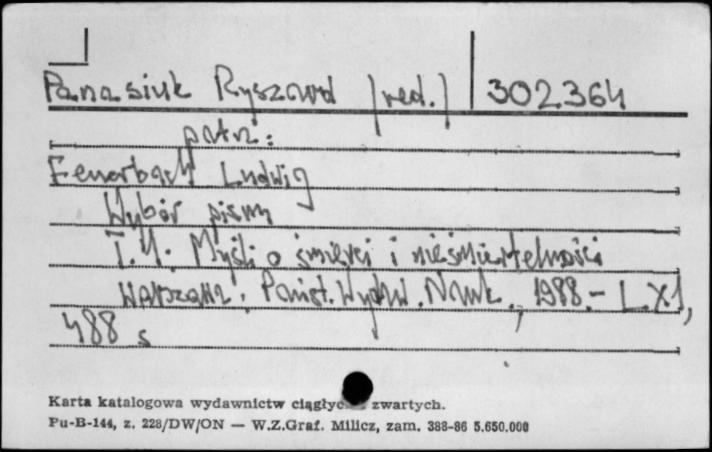 Panasiuk Ryszard (red.) 302364
patrz:
Feuerbach Ludwig
Wybór pism
T. 1: Myśli o śmierci i nieśmiertelności
Warszawa. Państ. Wydaw. Nauk., 1988. - LXI,
488 s
Karta katalogowa wydawnictw ciągłyc zwartych.
Pu-B-144, z. 228/DW/ON — W.Z.Graf. Milicz, zam. 388-86 5.650.000